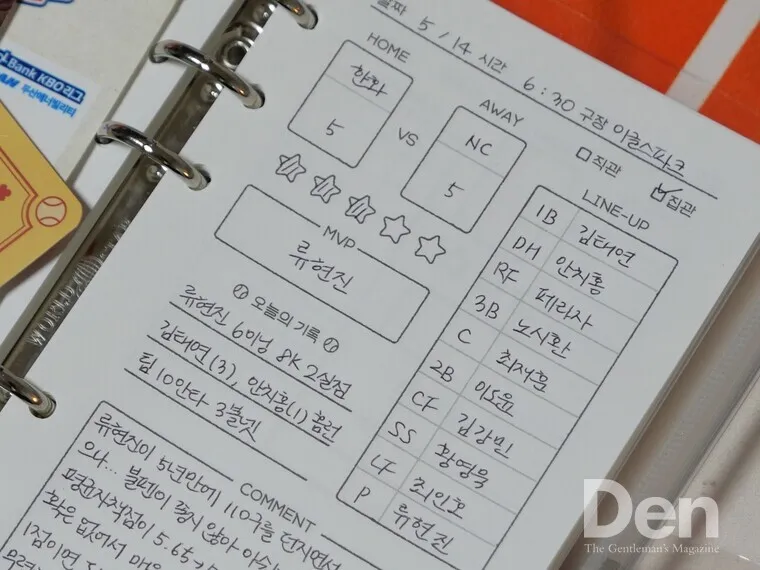 날짜 5 / 14 시간 6 : 30 구장 이글스파크
HOME
한화
5
VS
AWAY
NC
5
직관
집관
MVP
류현진
오늘의 기록
류현진 6이닝 8K 2실점
김태연(3), 안치홍(1) 홈런
팀 10안타 3볼넷
LINE-UP
1B 김태연
DH 안치홍
RF 페라자
3B 노시환
C 최재훈
2B 이도윤
CF 김강민
SS 황영묵
LF 최인호
P 류현진
COMMENT
류현진이 5년만에 110구를 던지면서
으나... 불펜이
평균자책점이 5.65
확은 없어서
1점이면
Bank KBO리그
Den
The Gentleman's Magazine